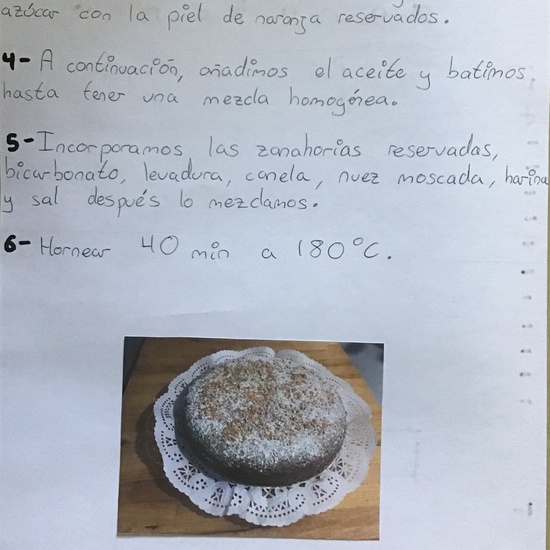 azúcar con la piel de naranja reservados.
4- A continuación, añadimos el aceite y batimos
hasta tener una mezcla homogénea.
5- Incorporamos las zanahorias reservadas,
bicarbonato, levadura, canela, nuez moscada, harina
y sal después lo mezclamos.
6- Hornear 40 min a 180°C.